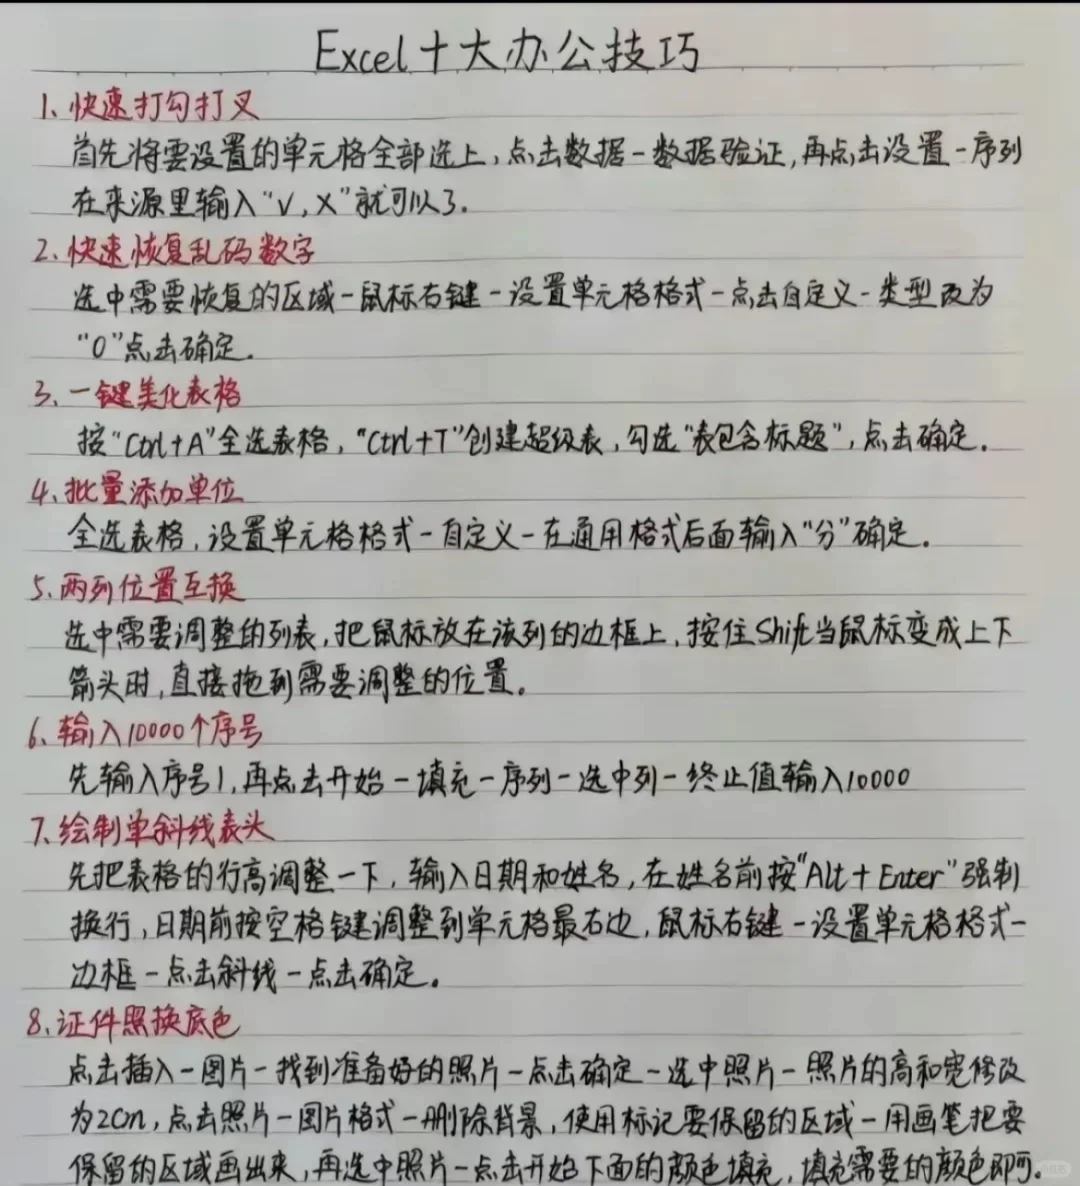 Excel十大办公技巧
1、快速打勾打叉
首先将要设置的单元格全部选上,点击数据-数据验证,再点击设置-序列
在来源里输入“√,X”就可以了.
2、快速恢复乱码数字
选中需要恢复的区域-鼠标右键-设置单元格格式-点击自定义-类型改为
“0”点击确定.
3、一键美化表格
按“Ctrl+A”全选表格,“Ctrl+T”创建超级表,勾选“表包含标题”,点击确定.
4、批量添加单位
全选表格,设置单元格格式-自定义-在通用格式后面输入“分”确定。
5、两列位置互换
选中需要调整的列表,把鼠标放在该列的边框上,按住Shift当鼠标变成上下
箭头时,直接拖到需要调整的位置。
6、输入10000个序号
先输入序号1,再点击开始-填充-序列-选中列-终止值输入10000
7、绘制单斜线表头
先把表格的行高调整一下,输入日期和姓名,在姓名前按“Alt+Enter”强制
换行,日期前按空格键调整到单元格最右边,鼠标右键-设置单元格格式-
边框-点击斜线-点击确定。
8、证件照换底色
点击插入-图片-找到准备好的照片-点击确定-选中照片-照片的高和宽修改
为2cm,点击照片-图片格式-删除背景,使用标记要保留的区域-用画笔把要
保留的区域画出来,再选中照片-点击开始下面的颜色填充,填充需要的颜色即可。